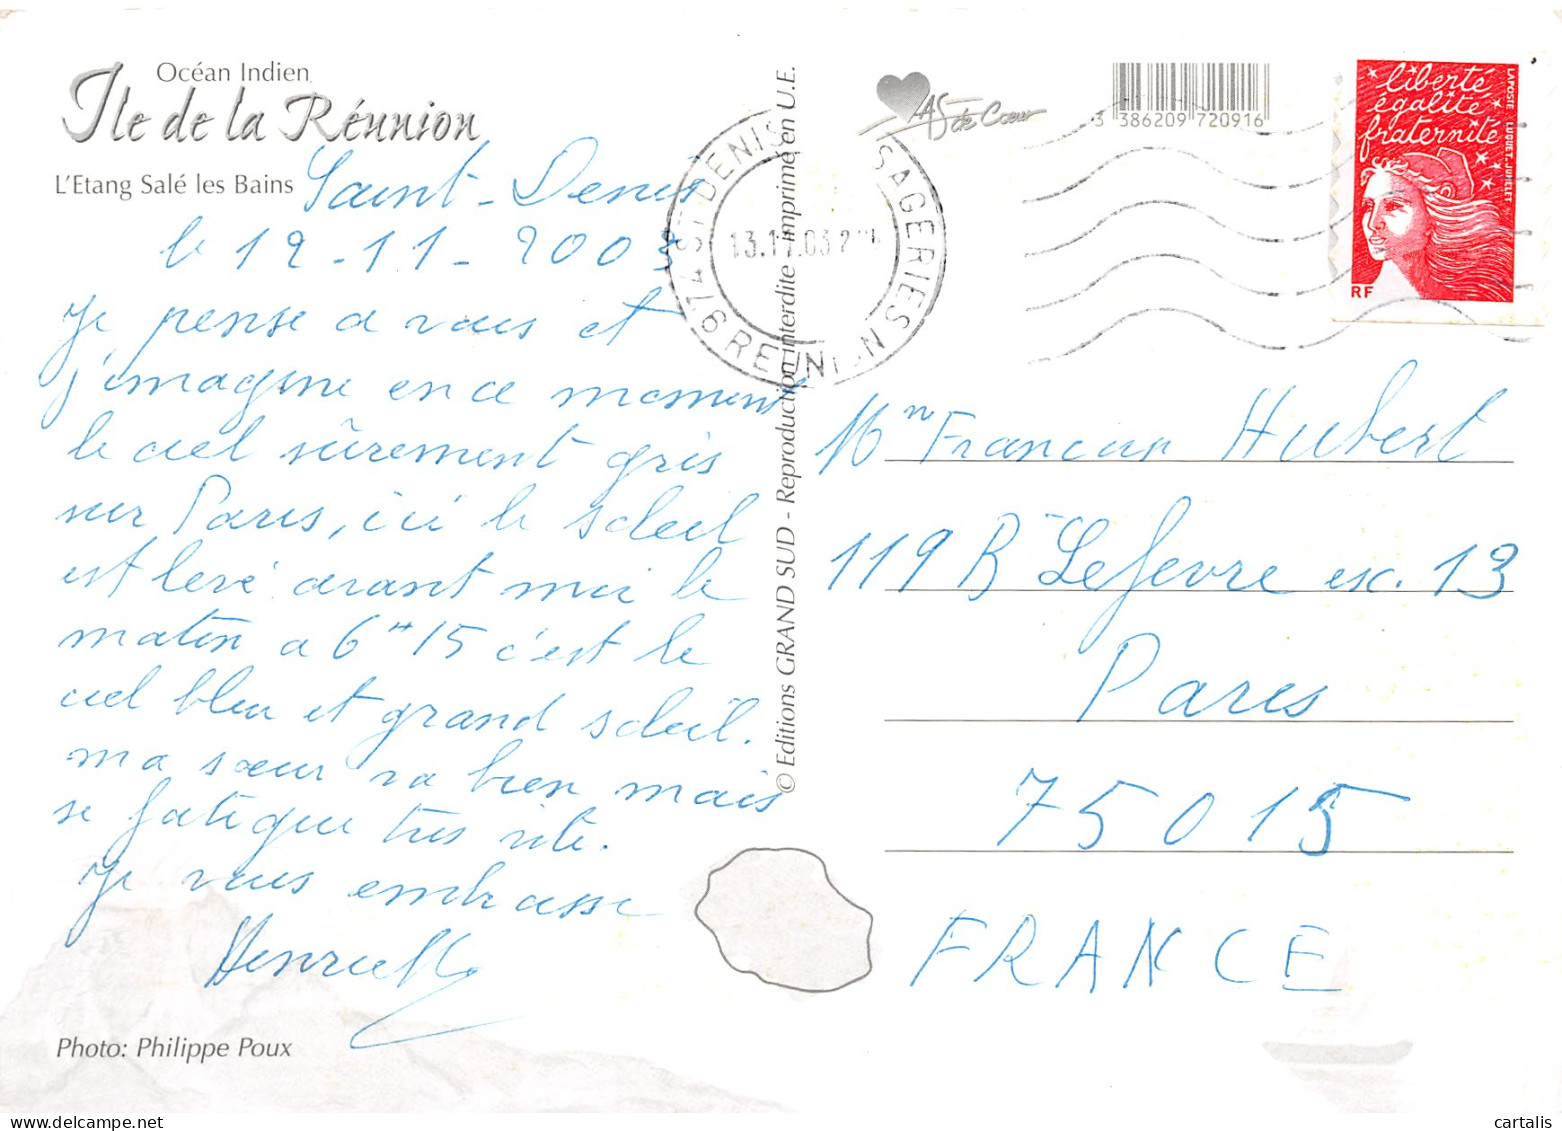 Océan Indien
Ile de la Réunion
L'Etang Salé les Bains
Saint-Denis
le 12-11-2003
Je pense a vous et
j'imagine en ce moment
le ciel sûrement gris
sur Paris, ici le soleil
est levé avant moi le
matin a 6H15 c'est le
ciel bleu et grand soleil.
ma sœur va bien mais
se fatigue très vite.
Je vous embrasse
Henriette
Photo: Philippe Poux
© Editions GRAND SUD - Reproduction interdite - Imprimé en U.E.
974 ST DENIS MESSAGERIES
13.11.03
REUNION
AS de Coeur
3 386209 720916
liberté
égalité
fraternité
LAPOSTE LUQUET-JUMELET
RF
Mme Hubert
119 R Lefevre esc. 13
Paris
75015
FRANCE
cartalis